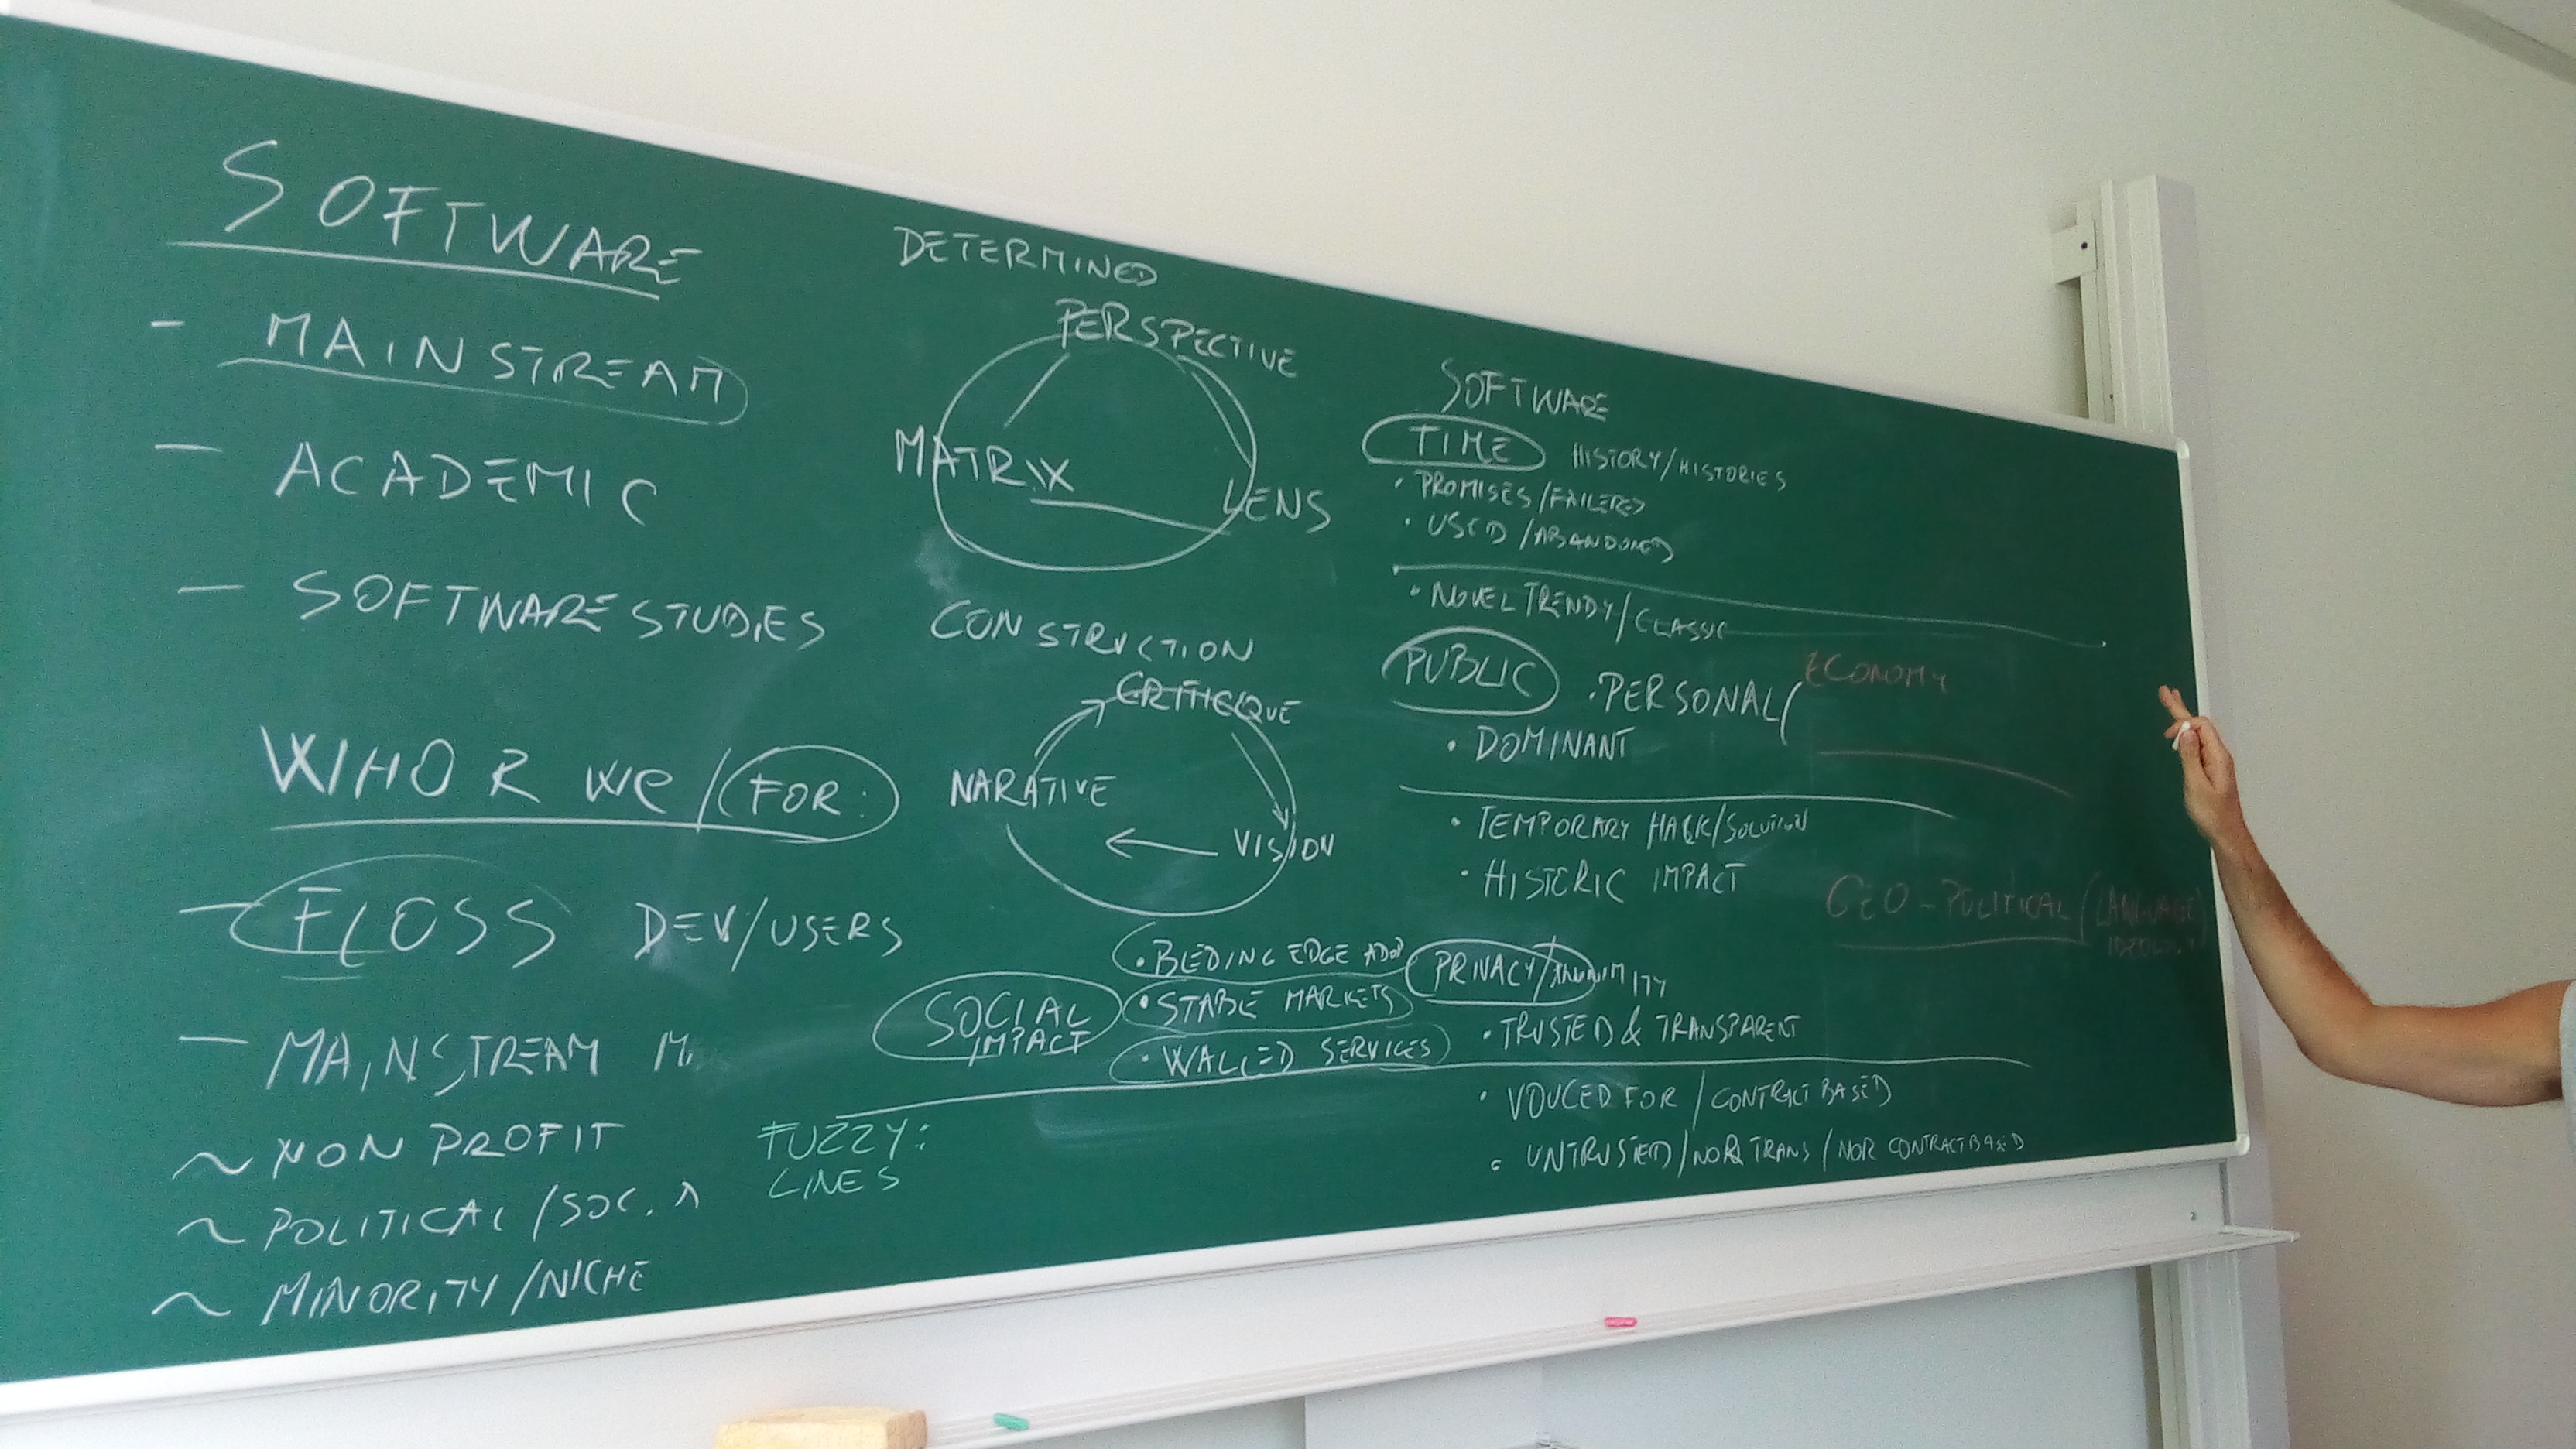 SOFTWARE
- MAINSTREAM
- ACADEMIC
- SOFTWARE STUDIES
WHO R WE / FOR:
- FLOSS DEV/USERS
- MAINSTREAM M.
~ NON PROFIT
~ POLITICAL / SOC.
~ MINORITY / NICHE
DETERMINED
PERSPECTIVE
MATRIX
LENS
CONSTRUCTION
CRITICQUE
NARATIVE
VISION
SOCIAL
IMPACT
• BLEDING EDGE ADOP
• STABLE MARKETS
• WALLED SERVICES
FUZZY:
LINES
SOFTWARE
TIME HISTORY/HISTORIES
• PROMISES/FAILERES
• USED/ABANDONED
• NOVEL TRENDY/CLASSIC
PUBLIC • PERSONAL/
ECONOMY
• DOMINANT
• TEMPORARY HACK/SOLUTION
• HISTORIC IMPACT
GEO-POLITICAL (LANGUAGE)
PRIVACY/
• TRUSTED & TRANSPARENT
• VOUCED FOR / CONTRACT BASED
• UNTRUSTED/NOR TRANS/NOR CONTRACT BASED